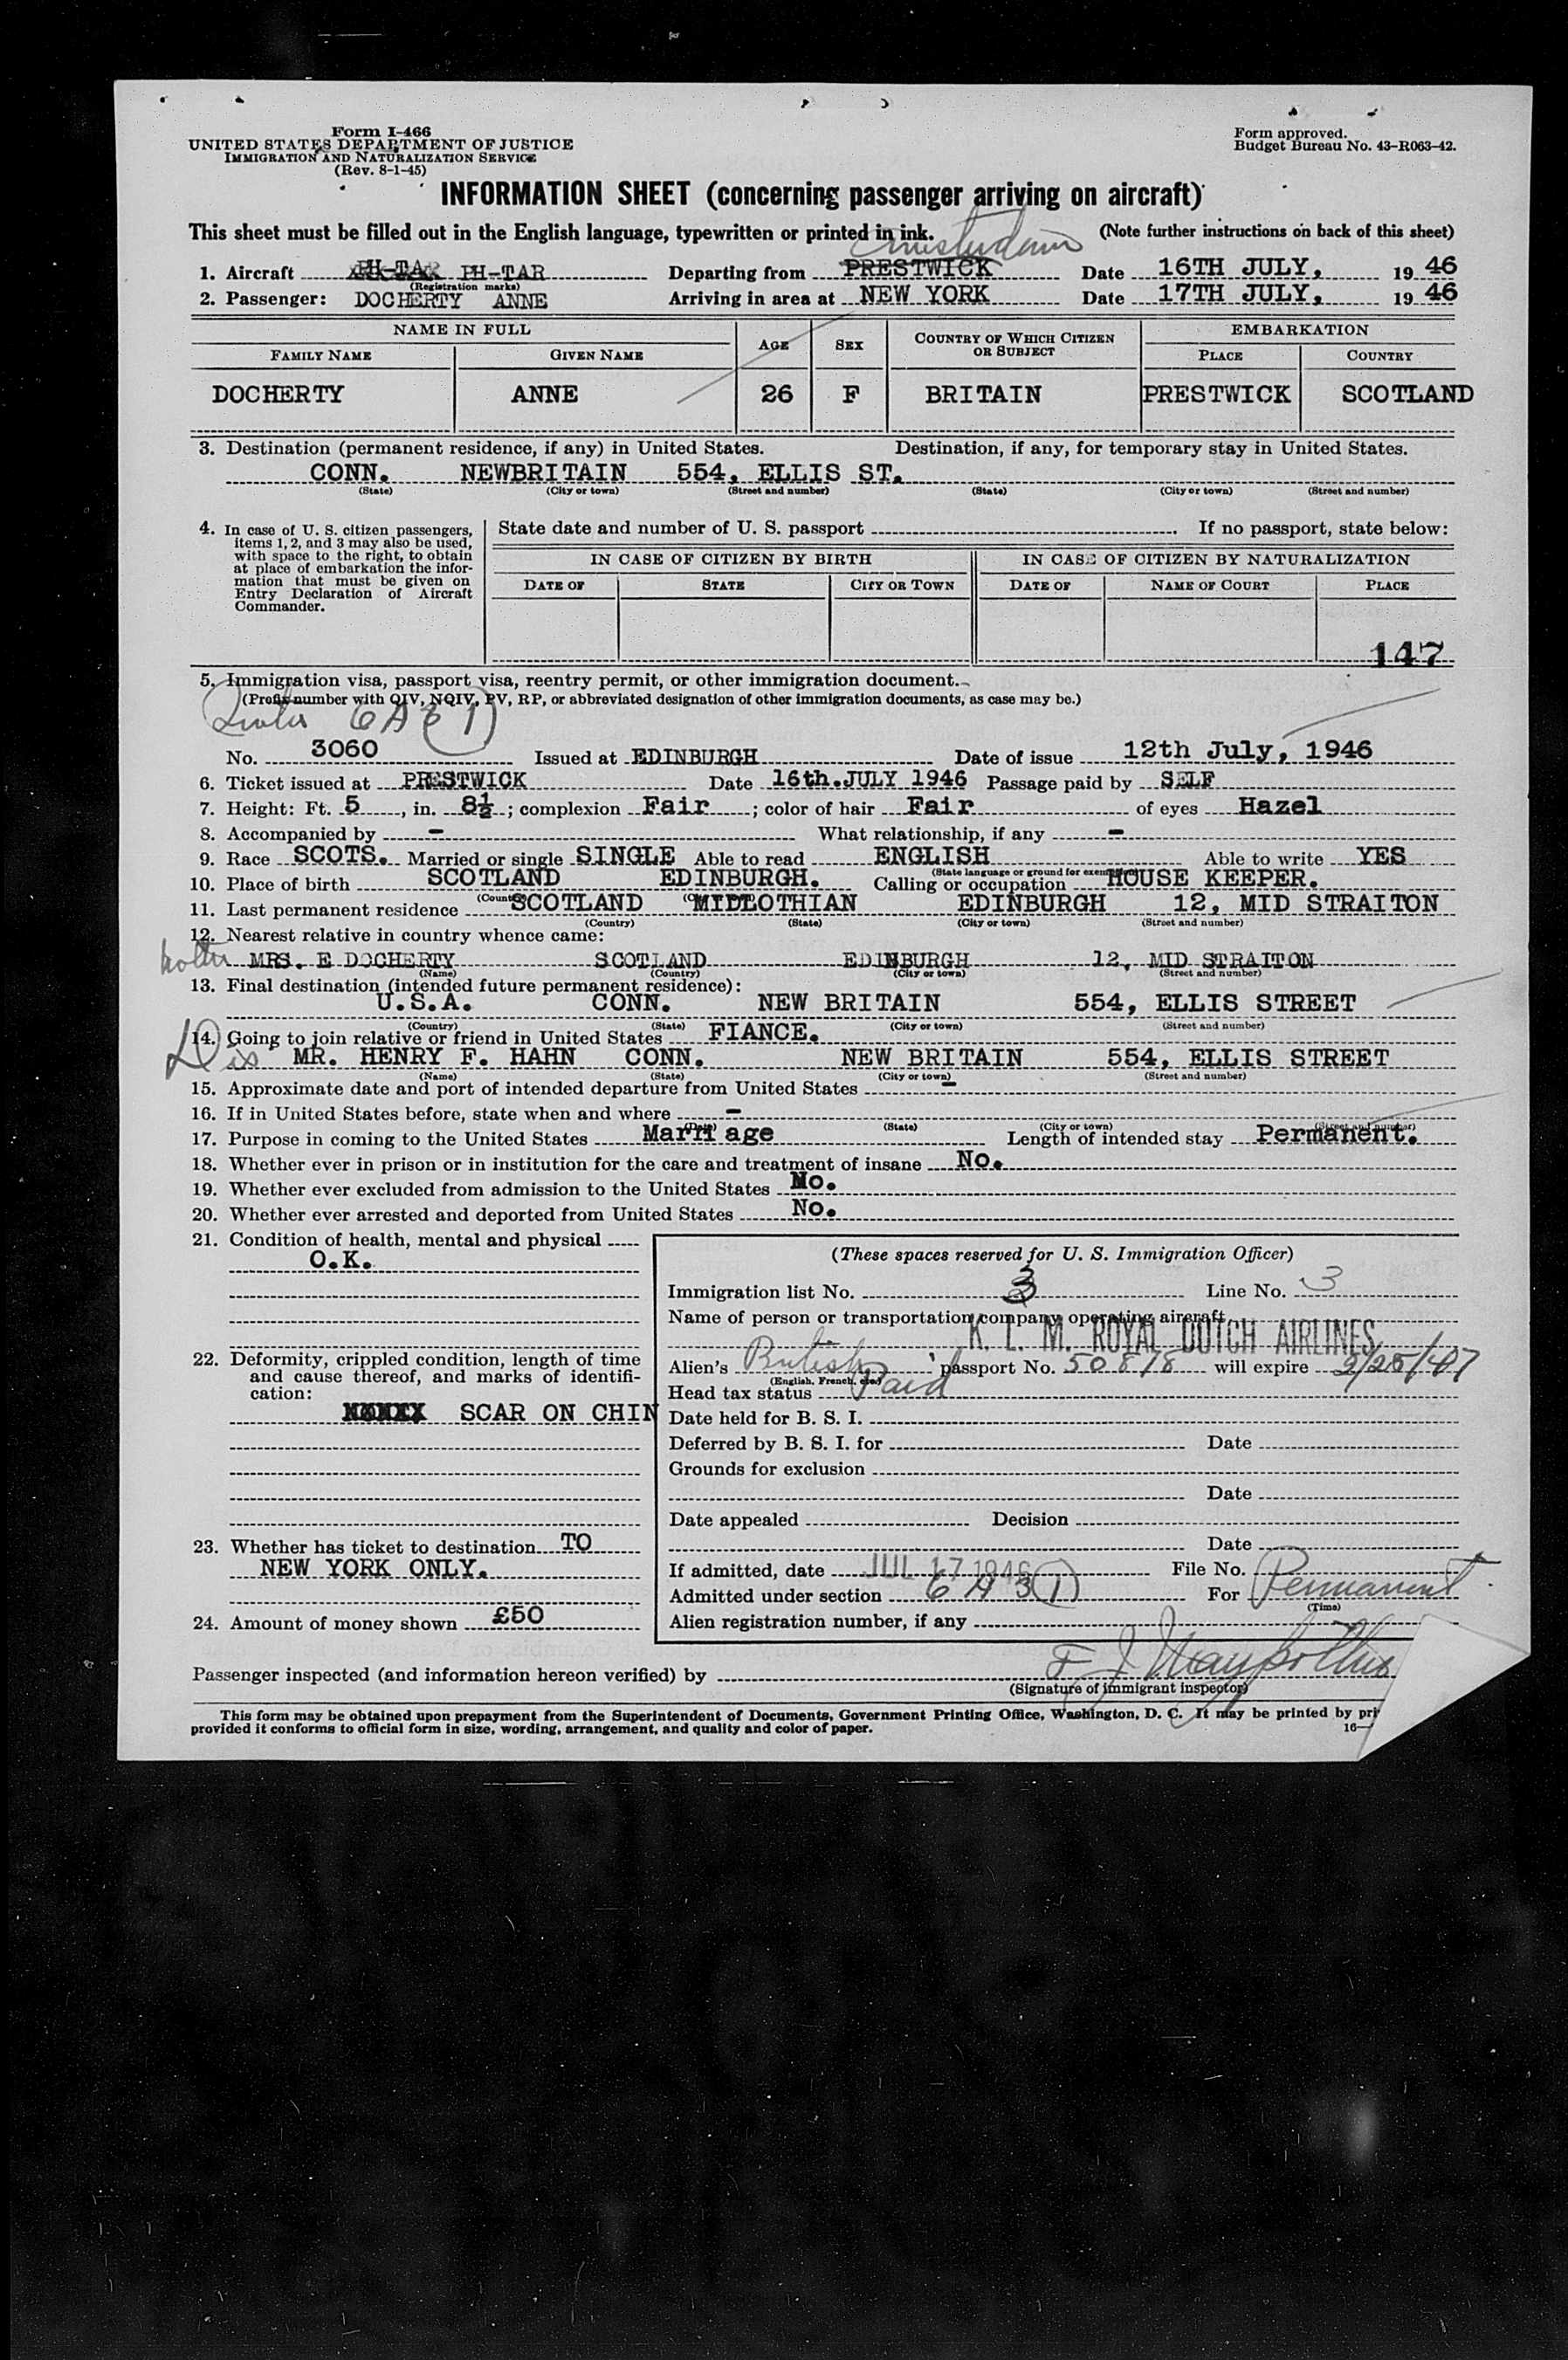 Form I-466
UNITED STATES DEPARTMENT OF JUSTICE
IMMIGRATION AND NATURALIZATION SERVICE
(Rev. 8-1-45)
Form approved.
Budget Bureau No. 43-R063-42.
INFORMATION SHEET (concerning passenger arriving on aircraft)
This sheet must be filled out in the English language, typewritten or printed in ink. (Note further instructions on back of this sheet)
Amsterdam
1. Aircraft PH-TAR PH-TAR Departing from PRESTWICK Date 16TH JULY, 19 46
(Registration marks)
2. Passenger: DOCHERTY ANNE Arriving in area at NEW YORK Date 17TH JULY, 19 46
NAME IN FULL AGE SEX COUNTRY OF WHICH CITIZEN OR SUBJECT EMBARKATION
FAMILY NAME GIVEN NAME PLACE COUNTRY
DOCHERTY ANNE 26 F BRITAIN PRESTWICK SCOTLAND
3. Destination (permanent residence, if any) in United States. Destination, if any, for temporary stay in United States.
CONN. NEWBRITAIN 554, ELLIS ST.
(State) (City or town) (Street and number) (State) (City or town) (Street and number)
4. In case of U. S. citizen passengers, items 1, 2, and 3 may also be used, with space to the right, to obtain at place of embarkation the information that must be given on Entry Declaration of Aircraft Commander.
State date and number of U. S. passport If no passport, state below:
IN CASE OF CITIZEN BY BIRTH IN CASE OF CITIZEN BY NATURALIZATION
DATE OF STATE CITY OR TOWN DATE OF NAME OF COURT PLACE
147
5. Immigration visa, passport visa, reentry permit, or other immigration document.
(Prefix number with QIV, NQIV, PV, RP, or abbreviated designation of other immigration documents, as case may be.)
6 A 3 (1)
No. 3060 Issued at EDINBURGH Date of issue 12th July, 1946
6. Ticket issued at PRESTWICK Date 16th.JULY 1946 Passage paid by SELF
7. Height: Ft. 5, in. 8½; complexion Fair; color of hair Fair of eyes Hazel
8. Accompanied by - What relationship, if any -
9. Race SCOTS. Married or single SINGLE Able to read ENGLISH Able to write YES
(State language or ground for exemption)
10. Place of birth SCOTLAND EDINBURGH. Calling or occupation HOUSE KEEPER.
11. Last permanent residence SCOTLAND MIDLOTHIAN EDINBURGH 12, MID STRAITON
(Country) (State) (City or town) (Street and number)
12. Nearest relative in country whence came:
Mother MRS. E DOCHERTY SCOTLAND EDINBURGH 12, MID STRAITON
(Name) (Country) (City or town) (Street and number)
13. Final destination (intended future permanent residence):
U.S.A. CONN. NEW BRITAIN 554, ELLIS STREET
(Country) (State) (City or town) (Street and number)
14. Going to join relative or friend in United States FIANCE.
MR. HENRY F. HAHN CONN. NEW BRITAIN 554, ELLIS STREET
(Name) (State) (City or town) (Street and number)
15. Approximate date and port of intended departure from United States -
16. If in United States before, state when and where -
(State) (City or town) (Street and number)
17. Purpose in coming to the United States Marriage Length of intended stay Permanent.
18. Whether ever in prison or in institution for the care and treatment of insane No.
19. Whether ever excluded from admission to the United States No.
20. Whether ever arrested and deported from United States No.
21. Condition of health, mental and physical
O.K.
22. Deformity, crippled condition, length of time and cause thereof, and marks of identification:
SCAR ON CHIN
23. Whether has ticket to destination TO
NEW YORK ONLY.
24. Amount of money shown £50
(These spaces reserved for U. S. Immigration Officer)
Immigration list No. 3 Line No. 3
Name of person or transportation company operating aircraft
K. L. M. ROYAL DUTCH AIRLINES
Alien's British passport No. 50878 will expire 2/25/47
(English, French, etc.)
Head tax status Paid
Date held for B. S. I.
Deferred by B. S. I. for Date
Grounds for exclusion
Date
Date appealed Decision
Date
If admitted, date JUL 17 1946 File No.
Admitted under section 6 A 3 (1) For Permanent
(Time)
Alien registration number, if any
Passenger inspected (and information hereon verified) by F J
(Signature of immigrant inspector)
This form may be obtained upon prepayment from the Superintendent of Documents, Government Printing Office, Washington, D. C. It may be printed by pri
provided it conforms to official form in size, wording, arrangement, and quality and color of paper.
16—